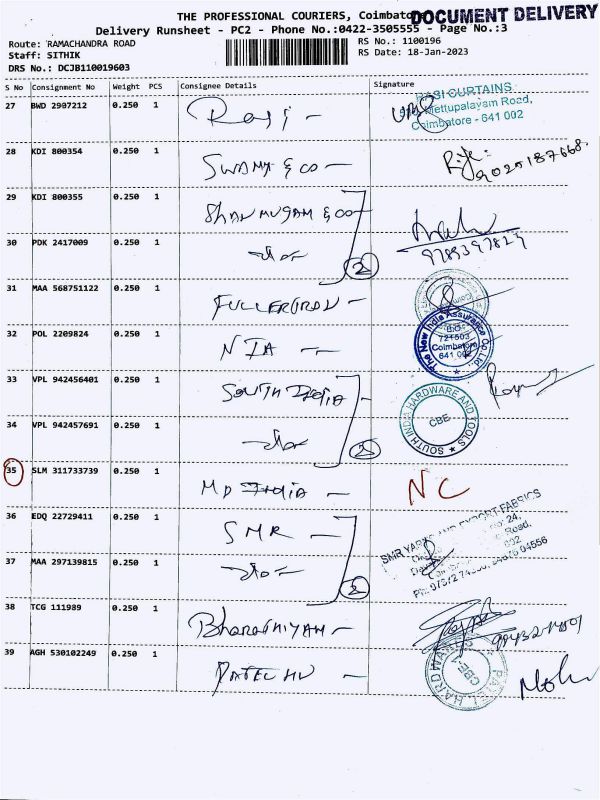 THE PROFESSIONAL COURIERS, Coimbato
DOCUMENT DELIVERY
Delivery Runsheet - PC2 - Phone No.:0422-3505555 - Page No.:3
Route: RAMACHANDRA ROAD
RS No.: 1100196
Staff: SITHIK
RS Date: 18-Jan-2023
DRS No.: DCJB110019603
S No Consignment No Weight PCS Consignee Details Signature
27 BWD 2907212 0.250 1
RASI CURTAINS
Mettupalayam Road,
Coimbatore - 641 002
28 KDI 800354 0.250 1 SWAMY & CO -
9025187668
29 KDI 800355 0.250 1 SHANMUGAM & CO
30 PDK 2417009 0.250 1 -do- 2
31 MAA 568751122 0.250 1 FULLERTRON -
32 POL 2209824 0.250 1 NIA -
The New India Assurance Co.Ltd.
B.O.
721503
Coimbatore
641 002
33 VPL 942456401 0.250 1 SOUTH INDIA
34 VPL 942457691 0.250 1 -do- 2
SOUTH INDIA HARDWARE AND TOOLS
CBE
35 SLM 311733739 0.250 1 MP INDIA - NC
36 EDQ 22729411 0.250 1 SMR -
SMR YARNS AND EXPORT FABRICS
37 MAA 297139815 0.250 1 -do- 2
38 TCG 111989 0.250 1 Bharathiyam -
39 AGH 530102249 0.250 1 PATEL HW -
PATEL HARDWARE
CBE